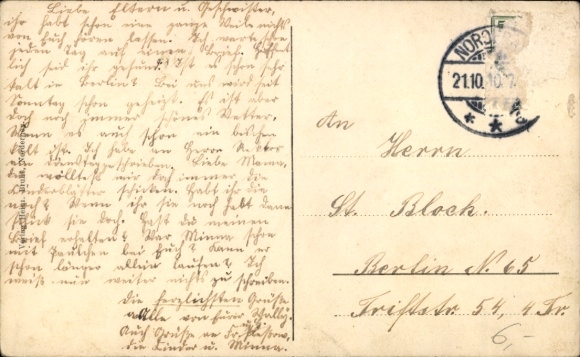 Liebe Eltern u. Geschwister,
ihr habt schon eine ganze Weile nichts
von Euch hören lassen. Ich warte schon
jeden Tag auf einen Brief. Hoffent
lich seid ihr gesund. Ist es schon sehr
kalt in Berlin? Bei uns wird seit
Sonntag schon geheizt. Es ist aber
doch noch immer schönes Wetter.
Wenn es auch schon ein bischen
kalt ist. Ich habe an Herrn
am Dienstag geschrieben. Liebe Mama,
du wolltest mir doch immer die
Kinderblätter schicken. Habt ihr die
noch? Wenn ihr sie noch habt dann
schick sie doch. Hast du meinen
Brief erhalten? War Minna schon
mit Paulchen bei Euch? Kann er
schon länger allein laufen? Ich
weiß nun weiter nichts zu schreiben.
Die herzlichsten Grüße
an Alle von Eurer Wally.
Auch Grüße an Fr.
die Kinder u. Minna.
NORD
21.10.10
An
Herrn
St. Block.
Berlin N. 65
Triftstr. 54, 4 Tr.
6,-